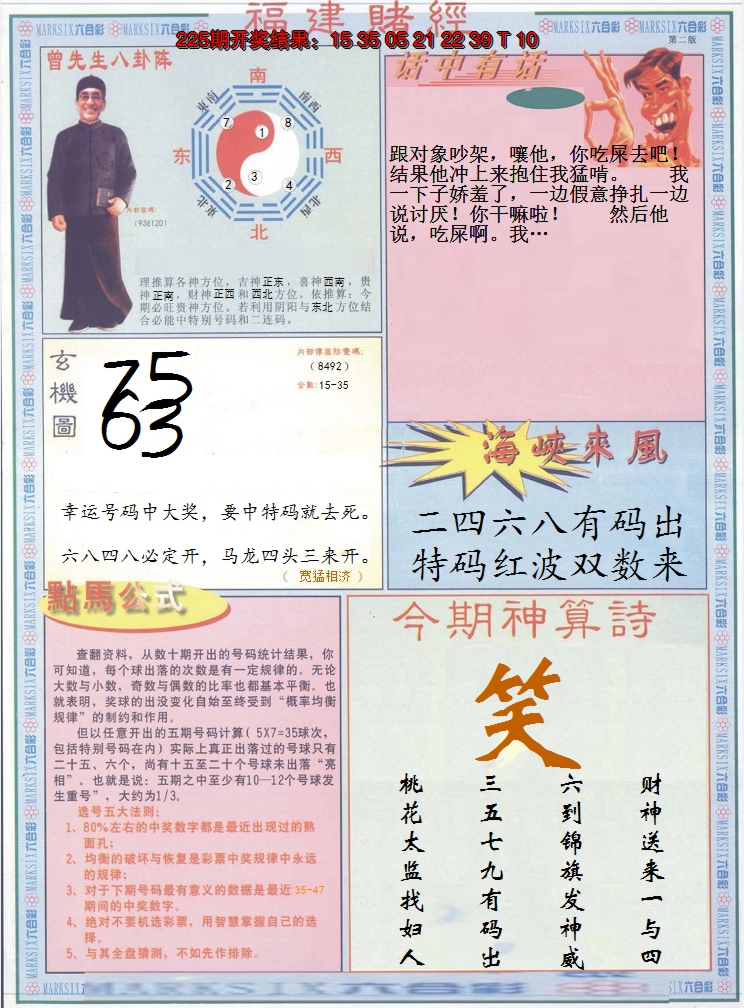 福建賭經
225期开奖结果：15 35 05 21 22 39 T 10
第二版
MARKSIX六合彩
曾先生八卦阵
南
东南
南西
7
1
8
东
西
2
3
4
東北
北西
北
内部密碼：
（936120）
理推算各神方位，吉神正东，喜神西南，贵
神正南，财神正西和西北方位。依推算：今
期必旺贵神方位。若利用阴阳与东北方位结
合必能中特别号码和二连码。
话中有话
跟对象吵架，嚷他，你吃屎去吧！
结果他冲上来抱住我猛啃。 我
一下子娇羞了，一边假意挣扎一边
说讨厌！你干嘛啦！ 然后他
说，吃屎啊。我…
玄機圖
75
63
内部傳密防變碼：
（8492）
合数：15-35
幸运号码中大奖，要中特码就去死。
六八四八必定开，马龙四头三来开。
（ 宽猛相济 ）
海峽來風
二四六八有码出
特码红波双数来
點馬公式
查翻资料，从数十期开出的号码统计结果，你
可知道，每个球出落的次数是有一定规律的。无论
大数与小数，奇数与偶数的比率也都基本平衡。也
就表明，奖球的出没变化自始至终受到“概率均衡
规律”的制约和作用。
但以任意开出的五期号码计算（5X7=35球次，
包括特别号码在内）实际上真正出落过的号球只有
二十五、六个，尚有十五至二十个号球未出落“亮
相”。也就是说：五期之中至少有10—12个号球发
生重号”，大约为1/3。
选号五大法则：
1、80%左右的中奖数字都是最近出现过的熟
面孔；
2、均衡的破坏与恢复是彩票中奖规律中永远
的规律；
3、对于下期号码最有意义的数据是最近35-47
期间的中奖数字。
4、绝对不要机选彩票，用智慧掌握自己的选
择。
5、与其全盘猜测，不如先作排除。
今期神算詩
笑
财神送来一与四
六到锦旗发神威
三五七九有码出
桃花太监找妇人